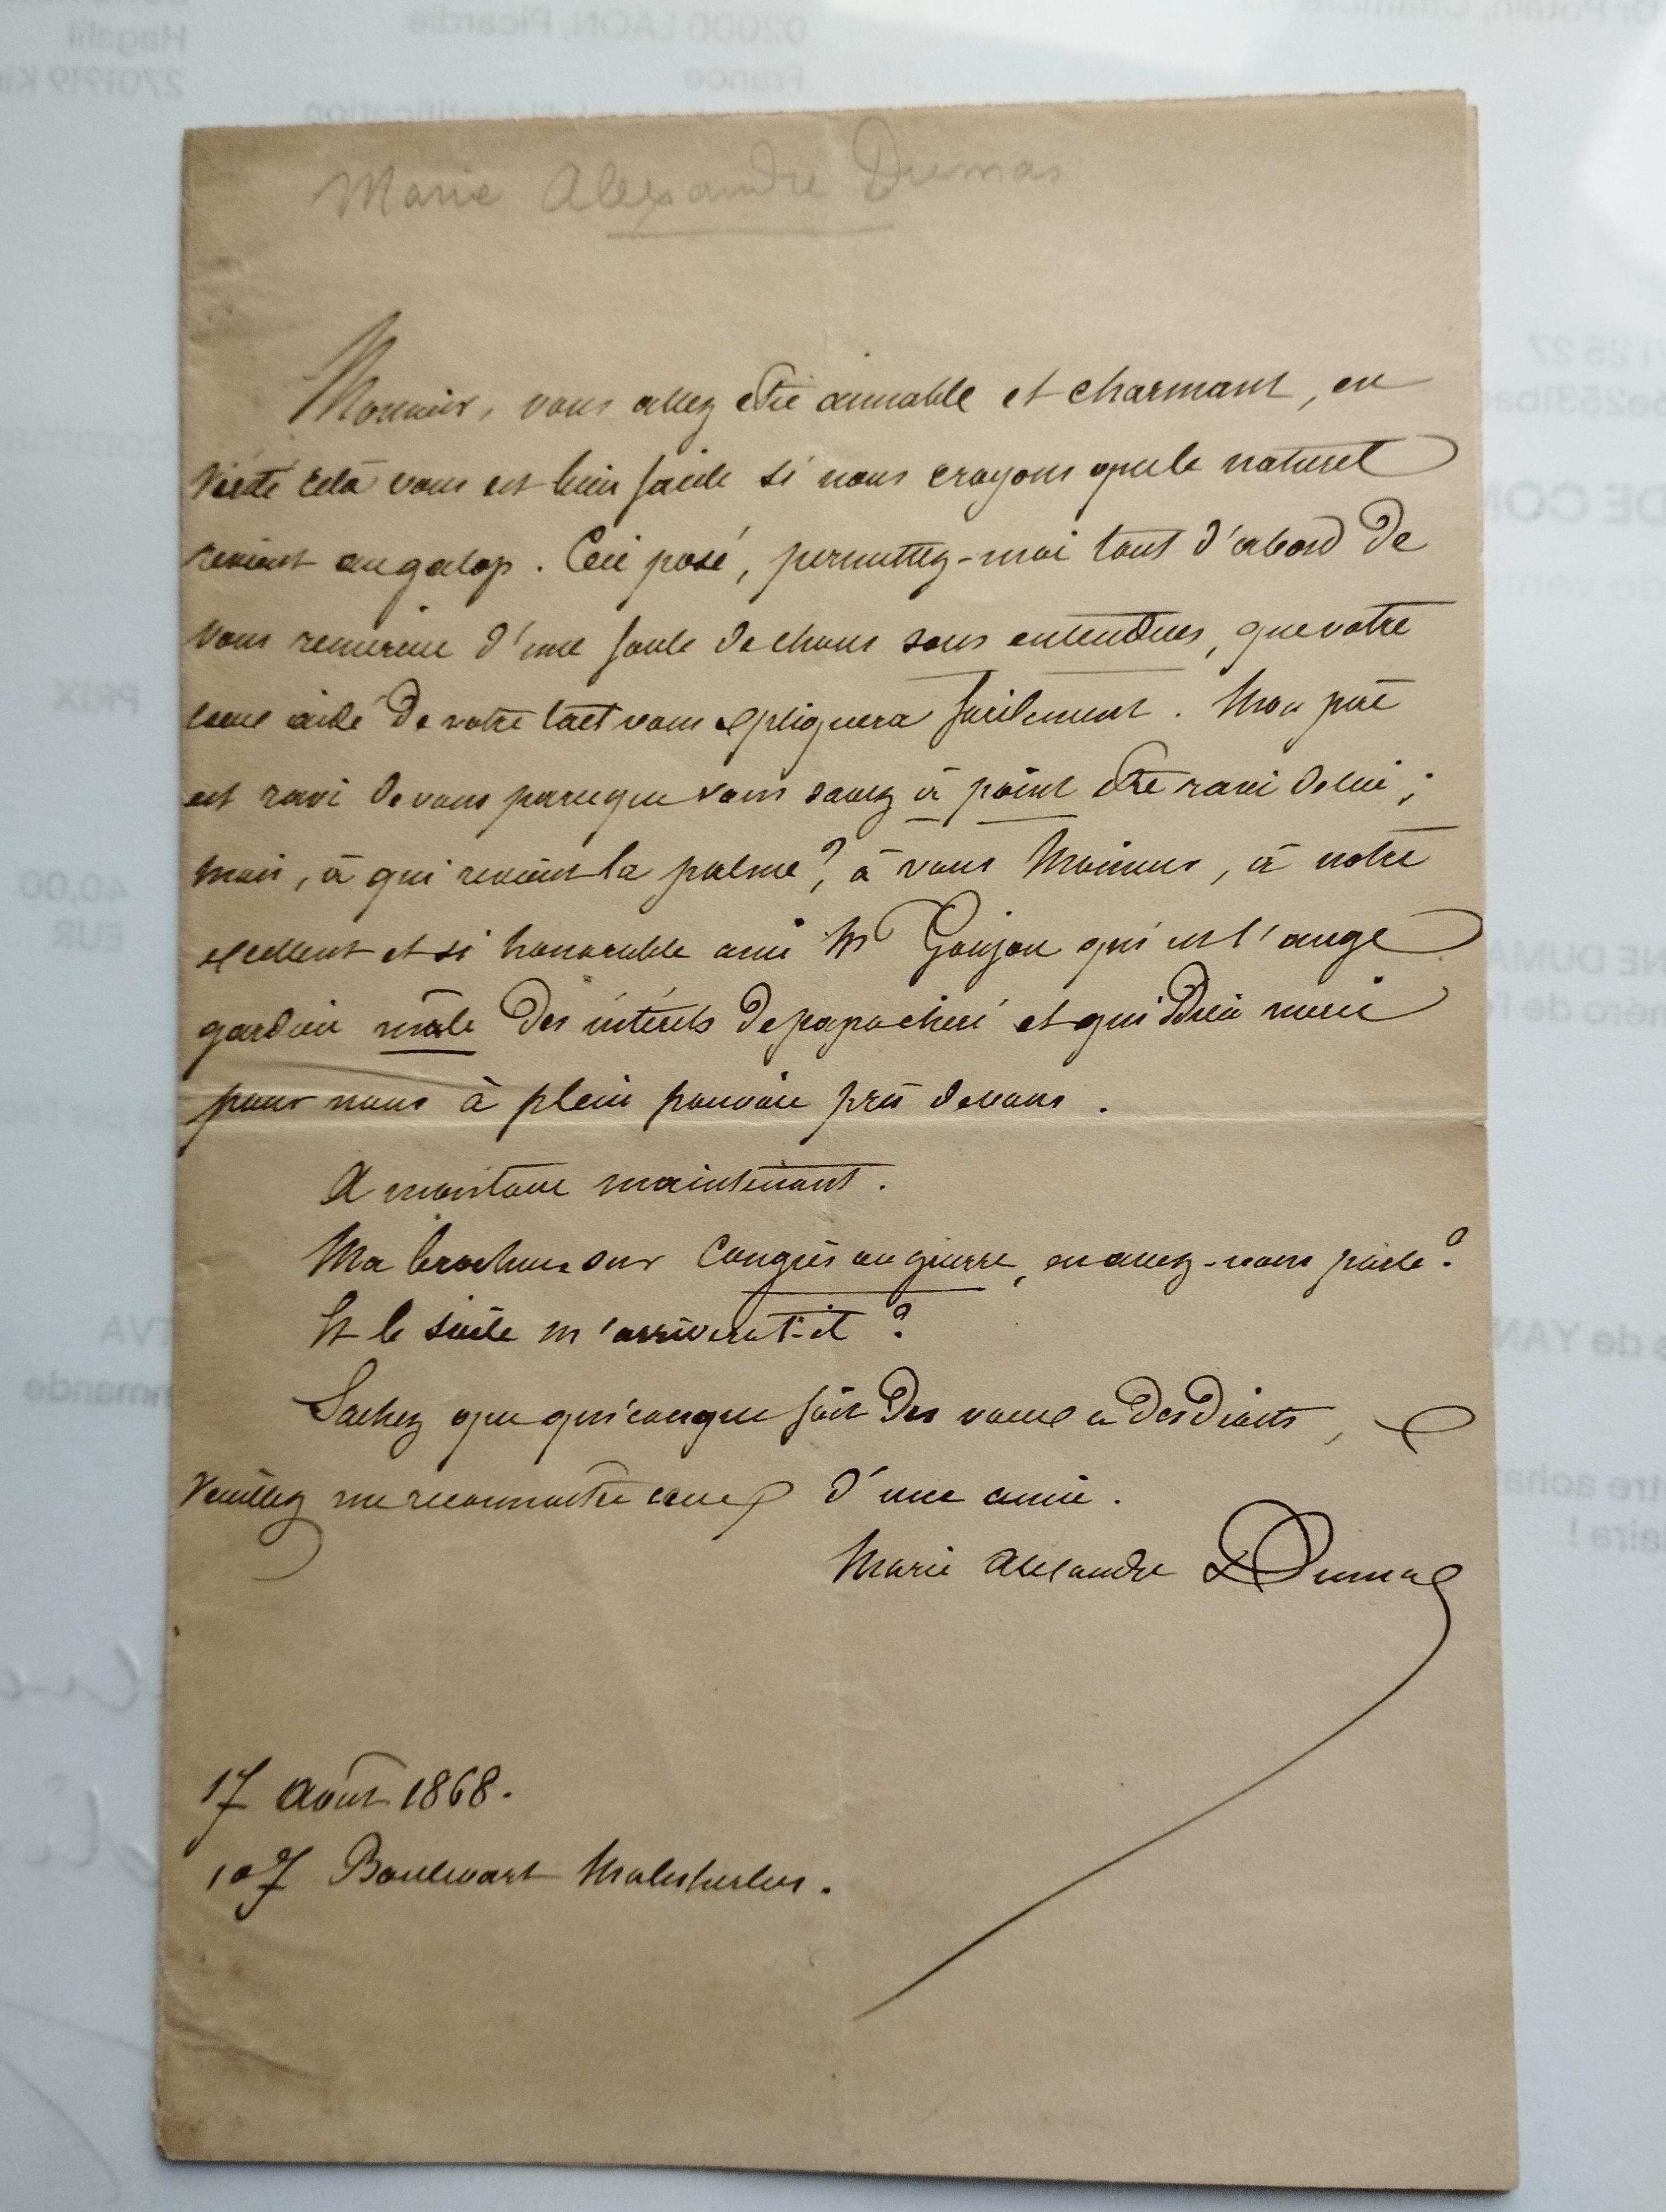 Marie Alexandre Dumas
Monsieur, vous allez être aimable et charmant, en
vérité cela vous est bien facile si nous croyons que le naturel
revient au galop. Ceci posé, permettez-moi tout d'abord de
vous remercier d'une foule de choses sous entendues, que votre
coeur aidé de votre tact vous expliquera facilement. Mon père
est ravi de vous parceque vous savez à point être ravi de lui ;
mais, à qui revient la palme ? à vous Monsieur, à notre
excellent et si honorable ami Mr Goujon qui est l'ange
gardien mâle des intérêts de papa chéri et qui Dieu merci
pour nous à plein pouvoir près de vous.
A mon tour maintenant.
Ma brochure sur Congrès ou guerre, en avez-vous parlé ?
Et le siècle m'arrivera t-il ?
Sachez que quiconque fait des voeux a des droits,
Veuillez me reconnaître ceux d'une amie.
Marie Alexandre Dumas
17 Août 1868.
107 Boulevart Malesherbes.
02000 LAON, Picardie
France
PRIX
40,00
EUR